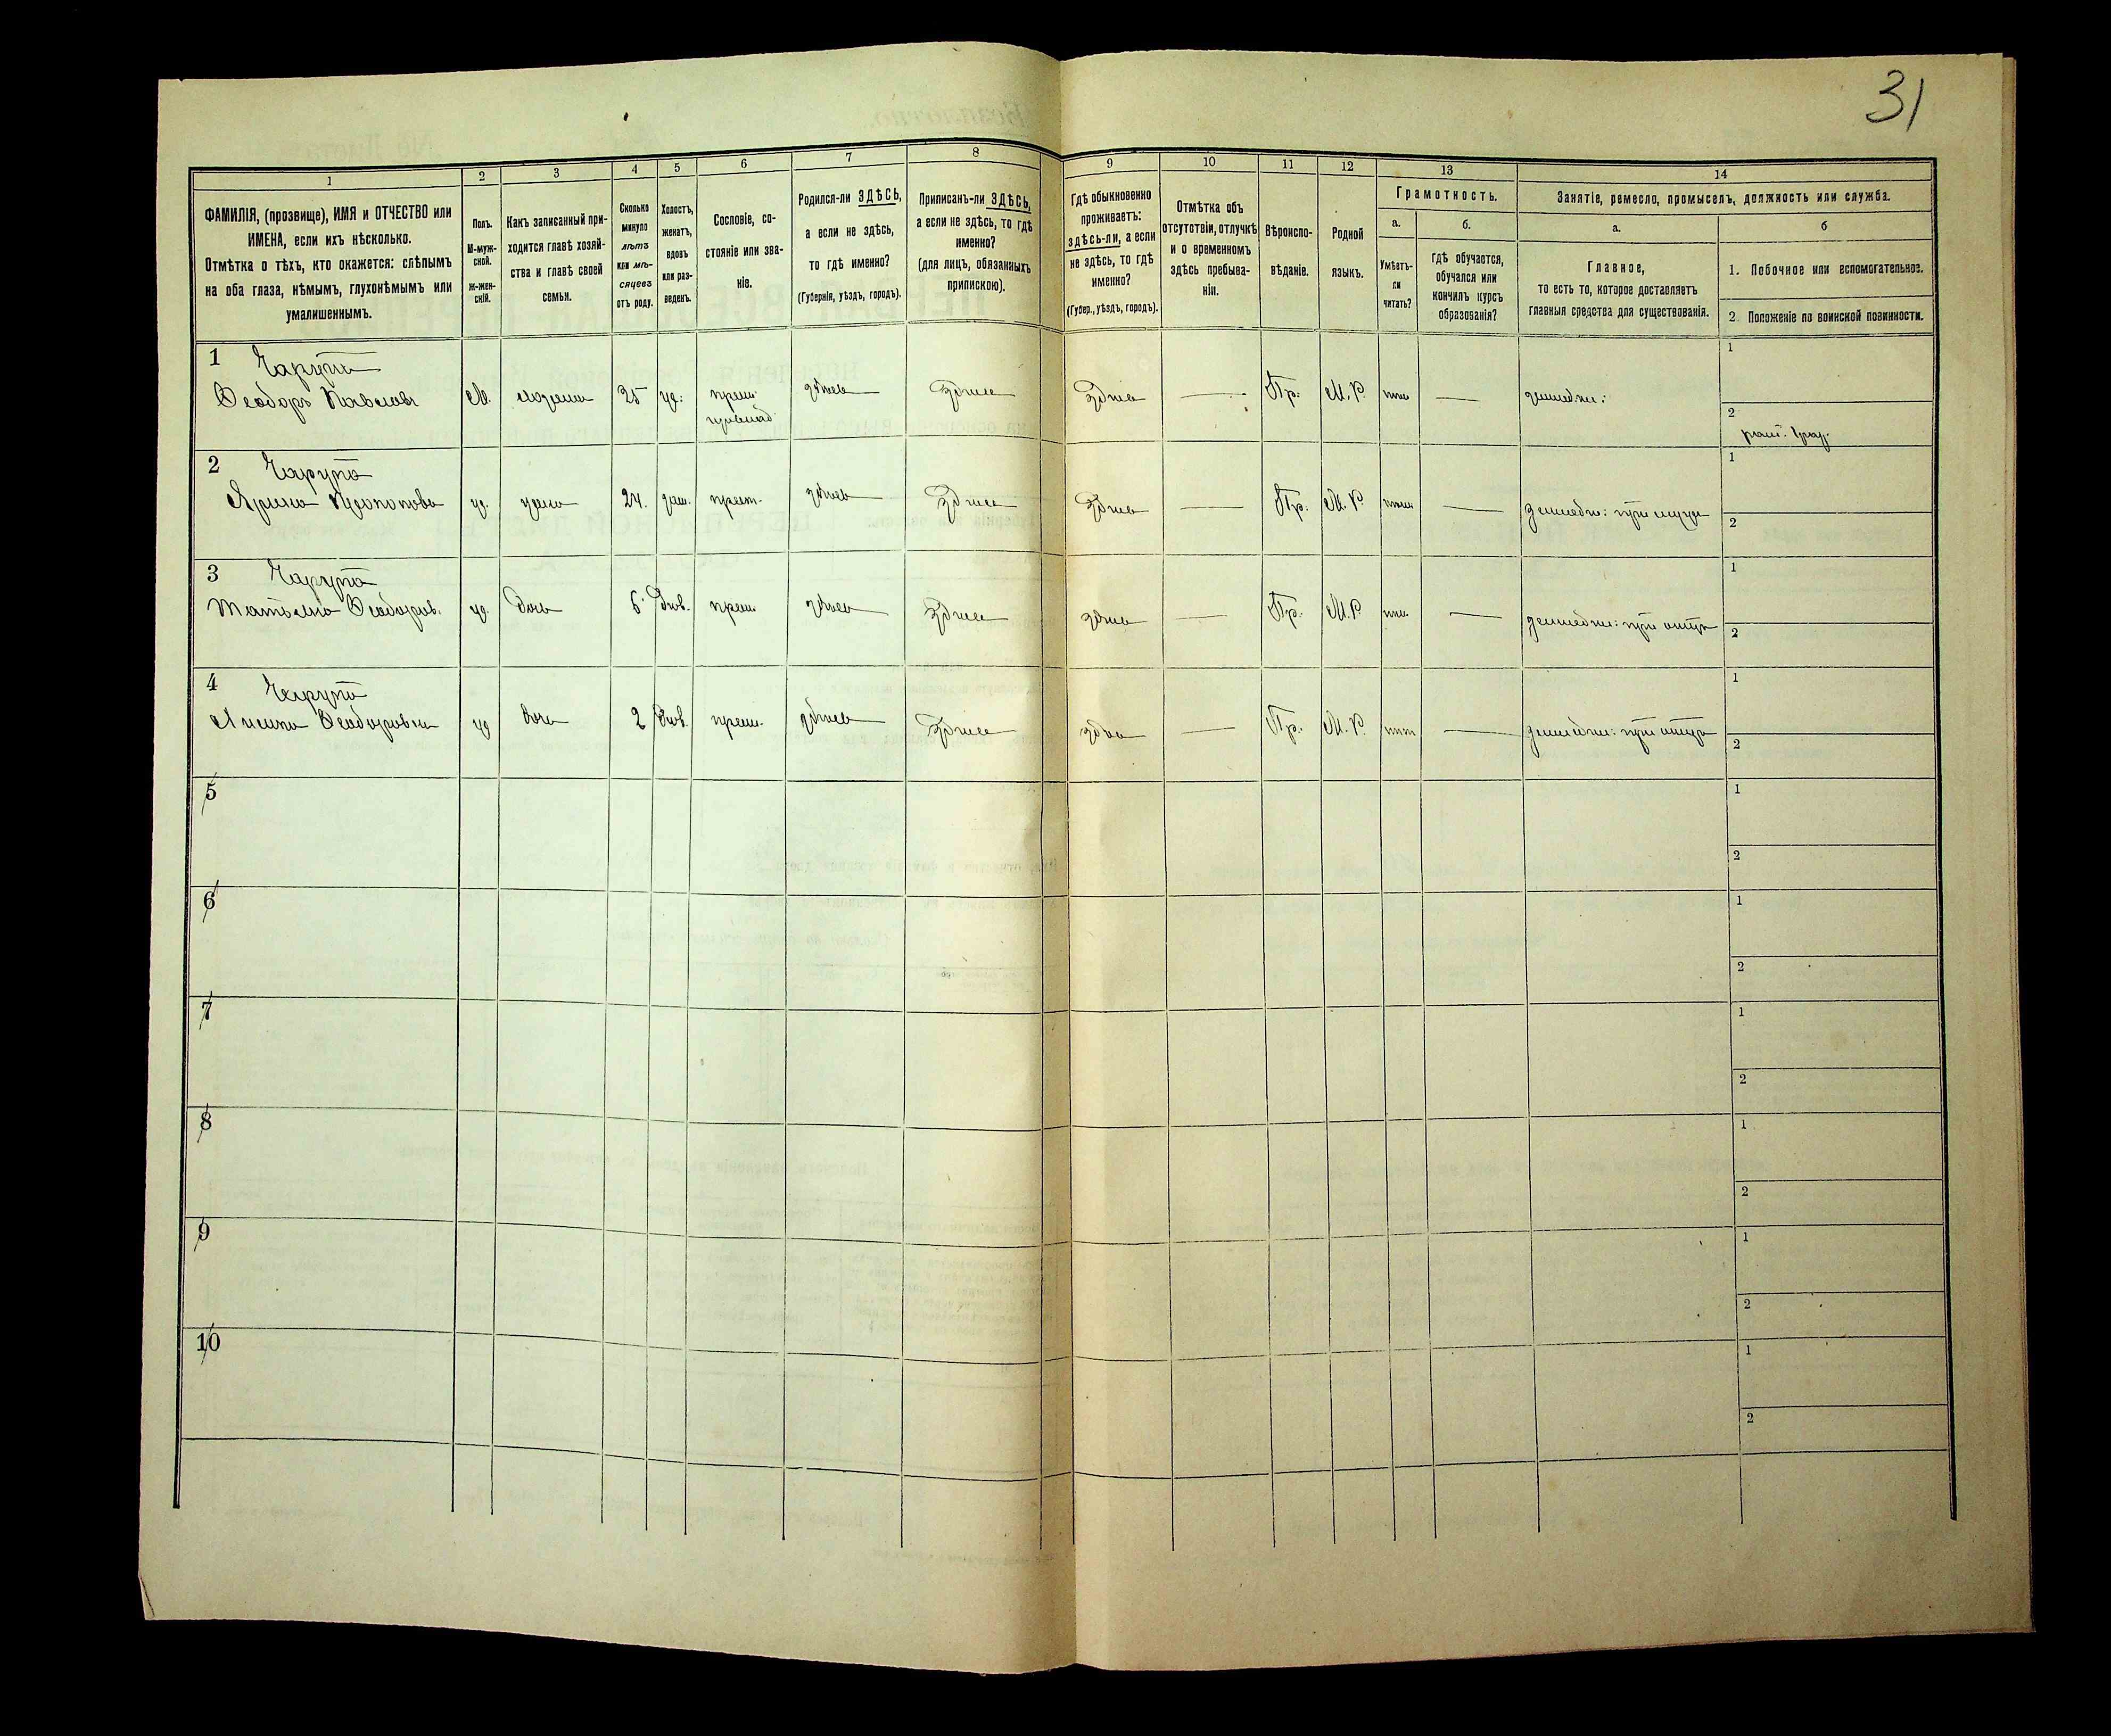 31
1
2
3
4
5
6
7
8
9
10
11
12
13
14
ФАМИЛІЯ, (прозвище), ИМЯ и ОТЧЕСТВО или
ИМЕНА, если ихъ нѣсколько.
Отмѣтка о тѣхъ, кто окажется: слѣпымъ
на оба глаза, нѣмымъ, глухонѣмымъ или
умалишеннымъ.
Полъ.
М-муж-
ской.
Ж-жен-
скій.
Какъ записанный при-
ходится главѣ хозяй-
ства и главѣ своей
семьи.
Сколько
минуло
лѣтъ
или мѣ-
сяцевъ
отъ роду.
Холостъ,
женатъ,
вдовъ
или раз-
веденъ.
Сословіе, со-
стояніе или зва-
ніе.
Родился-ли ЗДѢСЬ,
а если не здѣсь,
то гдѣ именно?
(Губернія, уѣздъ, городъ).
Приписанъ-ли ЗДѢСЬ,
а если не здѣсь, то гдѣ
именно?
(для лицъ, обязанныхъ
припискою).
Гдѣ обыкновенно
проживаетъ:
здѣсь-ли, а если
не здѣсь, то гдѣ
именно?
(Губер., уѣздъ, городъ).
Отмѣтка объ
отсутствіи, отлучкѣ
и о временномъ
здѣсь пребыва-
ніи.
Вѣроиспо-
вѣданіе.
Родной
языкъ.
Грамотность.
а.
Умѣетъ-
ли
читать?
б.
гдѣ обучается,
обучался или
кончилъ курсъ
образованія?
Занятіе, ремесло, промыселъ, должность или служба.
а.
Главное,
то есть то, которое доставляетъ
главныя средства для существованія.
б
1. Побочное или вспомогательное.
2. Положеніе по воинской повинности.
1 Чарупа
Феодоръ Павловъ М. хозяинъ 25 ж. здѣсь здѣсь здѣсь — Пр. М. Р. нѣтъ — землед.
1
2
2 Чарупа
Ярина ж. жена 24. зам. крест. здѣсь здѣсь здѣсь — Пр. М. Р. нѣтъ — земледѣл: при мужѣ
1
2
3 Чарупа
Татьяна Феодоров. ж. дочь 6 дѣв. крест. здѣсь здѣсь здѣсь — Пр. М. Р. нѣтъ — земледѣл: при отцѣ
1
2
4 Чарупа
Феодоровна ж дочь 2 дѣв. крест. здѣсь здѣсь здѣсь — Пр. М. Р. нѣтъ — земледѣл: при отцѣ
1
2
5
1
2
6
1
2
7
1
2
8
1
2
9
1
2
10
1
2